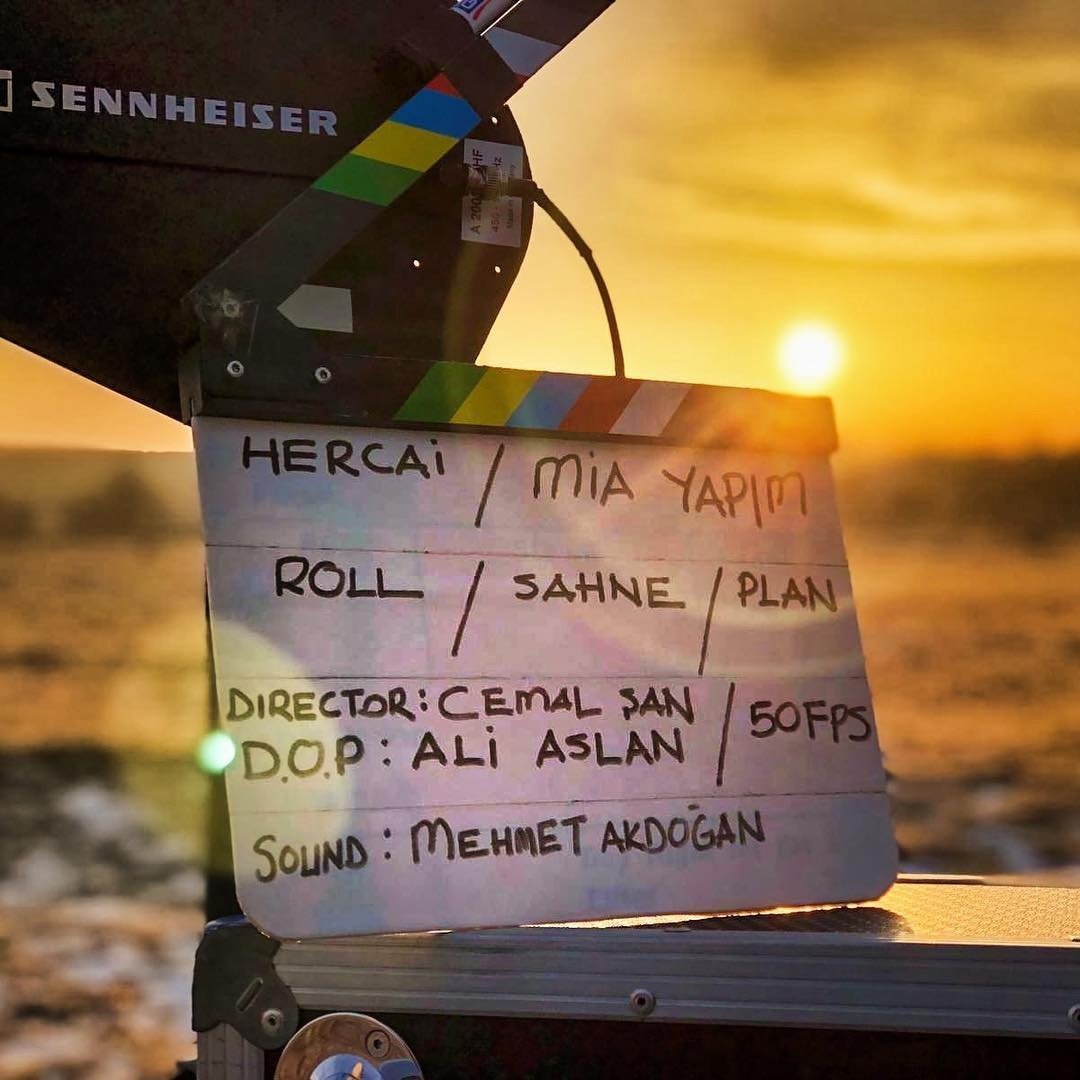 SENNHEISER
A 200
HERCAi / MiA YAPIM
ROLL / SAHNE / PLAN
DIRECTOR: CEMAL ŞAN / 50FPS
D.O.P: ALi ASLAN
SOUND: MEHMET AKDOĞAN